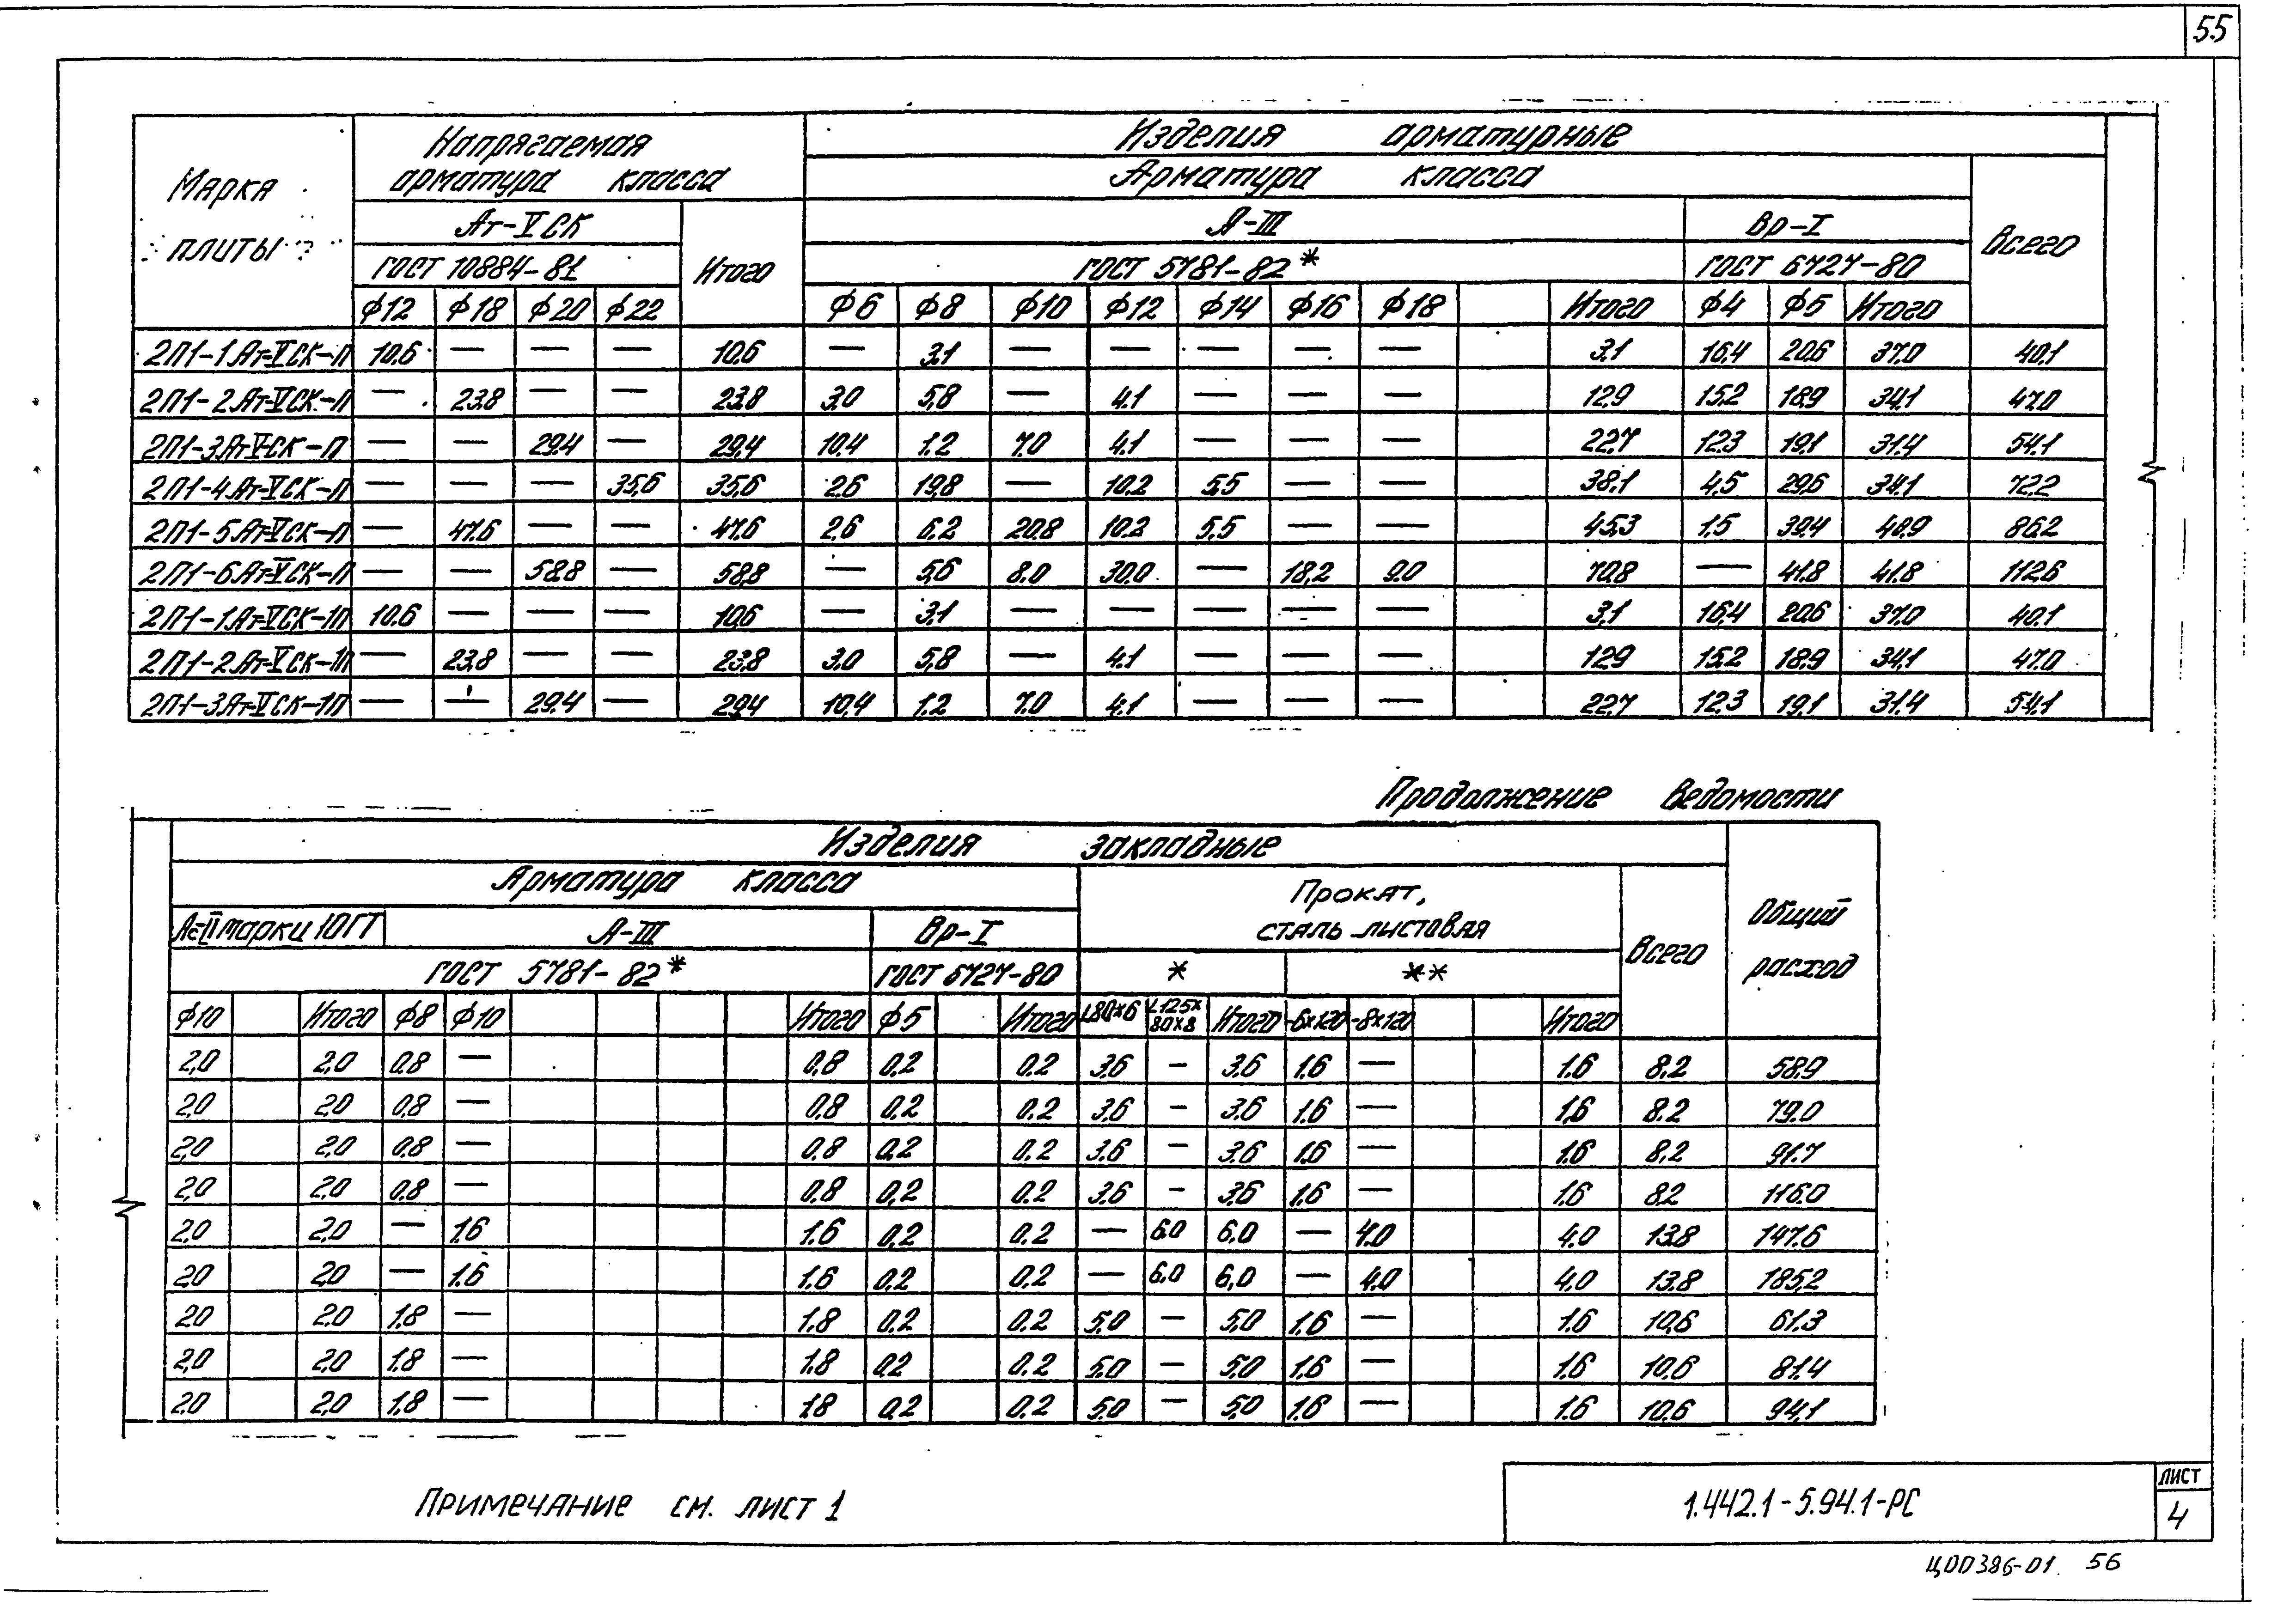 55
Марка плиты
Напрягаемая арматура класса
Изделия арматурные
Арматура класса
Ат-VСК
Итого
А-III
Вр-I
Всего
ГОСТ 10884-81
ГОСТ 5781-82*
ГОСТ 6727-80
ф12 ф18 ф20 ф22 ф6 ф8 ф10 ф12 ф14 ф16 ф18 Итого ф4 ф5 Итого
2П1-1Ат-VСК-П 10,6 — — — 10,6 — 3,1 — — — — — 3,1 16,4 20,6 37,0 40,1
2П1-2Ат-VСК-П — 23,8 — — 23,8 3,0 5,8 — 4,1 — — — 12,9 15,2 18,9 34,1 47,0
2П1-3Ат-VСК-П — — 29,4 — 29,4 10,4 1,2 7,0 4,1 — — — 22,7 12,3 19,1 31,4 54,1
2П1-4Ат-VСК-П — — — 35,6 35,6 2,6 19,8 — 10,2 5,5 — — 38,1 4,5 29,6 34,1 72,2
2П1-5Ат-VСК-П — 47,6 — — 47,6 2,6 6,2 20,8 10,2 5,5 — — 45,3 1,5 39,4 40,9 86,2
2П1-6Ат-VСК-П — — 58,8 — 58,8 — 5,6 8,0 30,0 — 18,2 9,0 70,8 — 41,8 41,8 112,6
2П1-1Ат-VСК-1П 10,6 — — — 10,6 — 3,1 — — — — — 3,1 16,4 20,6 37,0 40,1
2П1-2Ат-VСК-1П — 23,8 — — 23,8 3,0 5,8 — 4,1 — — — 12,9 15,2 18,9 34,1 47,0
2П1-3Ат-VСК-1П — — 29,4 — 29,4 10,4 1,2 7,0 4,1 — — — 22,7 12,3 19,1 31,4 54,1
Продолжение ведомости
Изделия закладные
Общий расход
Арматура класса
Прокат, сталь листовая
Всего
Ас-II марки 10ГТ А-III Вр-I
ГОСТ 5781-82* ГОСТ 6727-80 * **
ф10 Итого ф8 ф10 Итого ф5 Итого L80×6 L125×80×8 Итого -6×120 -8×120 Итого
2,0 2,0 0,8 — 0,8 0,2 0,2 3,6 — 3,6 1,6 — 1,6 8,2 58,9
2,0 2,0 0,8 — 0,8 0,2 0,2 3,6 — 3,6 1,6 — 1,6 8,2 79,0
2,0 2,0 0,8 — 0,8 0,2 0,2 3,6 — 3,6 1,6 — 1,6 8,2 91,7
2,0 2,0 0,8 — 0,8 0,2 0,2 3,6 — 3,6 1,6 — 1,6 8,2 116,0
2,0 2,0 — 1,6 1,6 0,2 0,2 — 6,0 6,0 — 4,0 4,0 13,8 147,6
2,0 2,0 — 1,6 1,6 0,2 0,2 — 6,0 6,0 — 4,0 4,0 13,8 185,2
2,0 2,0 1,8 — 1,8 0,2 0,2 5,0 — 5,0 1,6 — 1,6 10,6 61,3
2,0 2,0 1,8 — 1,8 0,2 0,2 5,0 — 5,0 1,6 — 1,6 10,6 81,4
2,0 2,0 1,8 — 1,8 0,2 0,2 5,0 — 5,0 1,6 — 1,6 10,6 94,1
Примечание см. лист 1
1.442.1-5.94.1-РС
лист
4
Ц00386-01 56